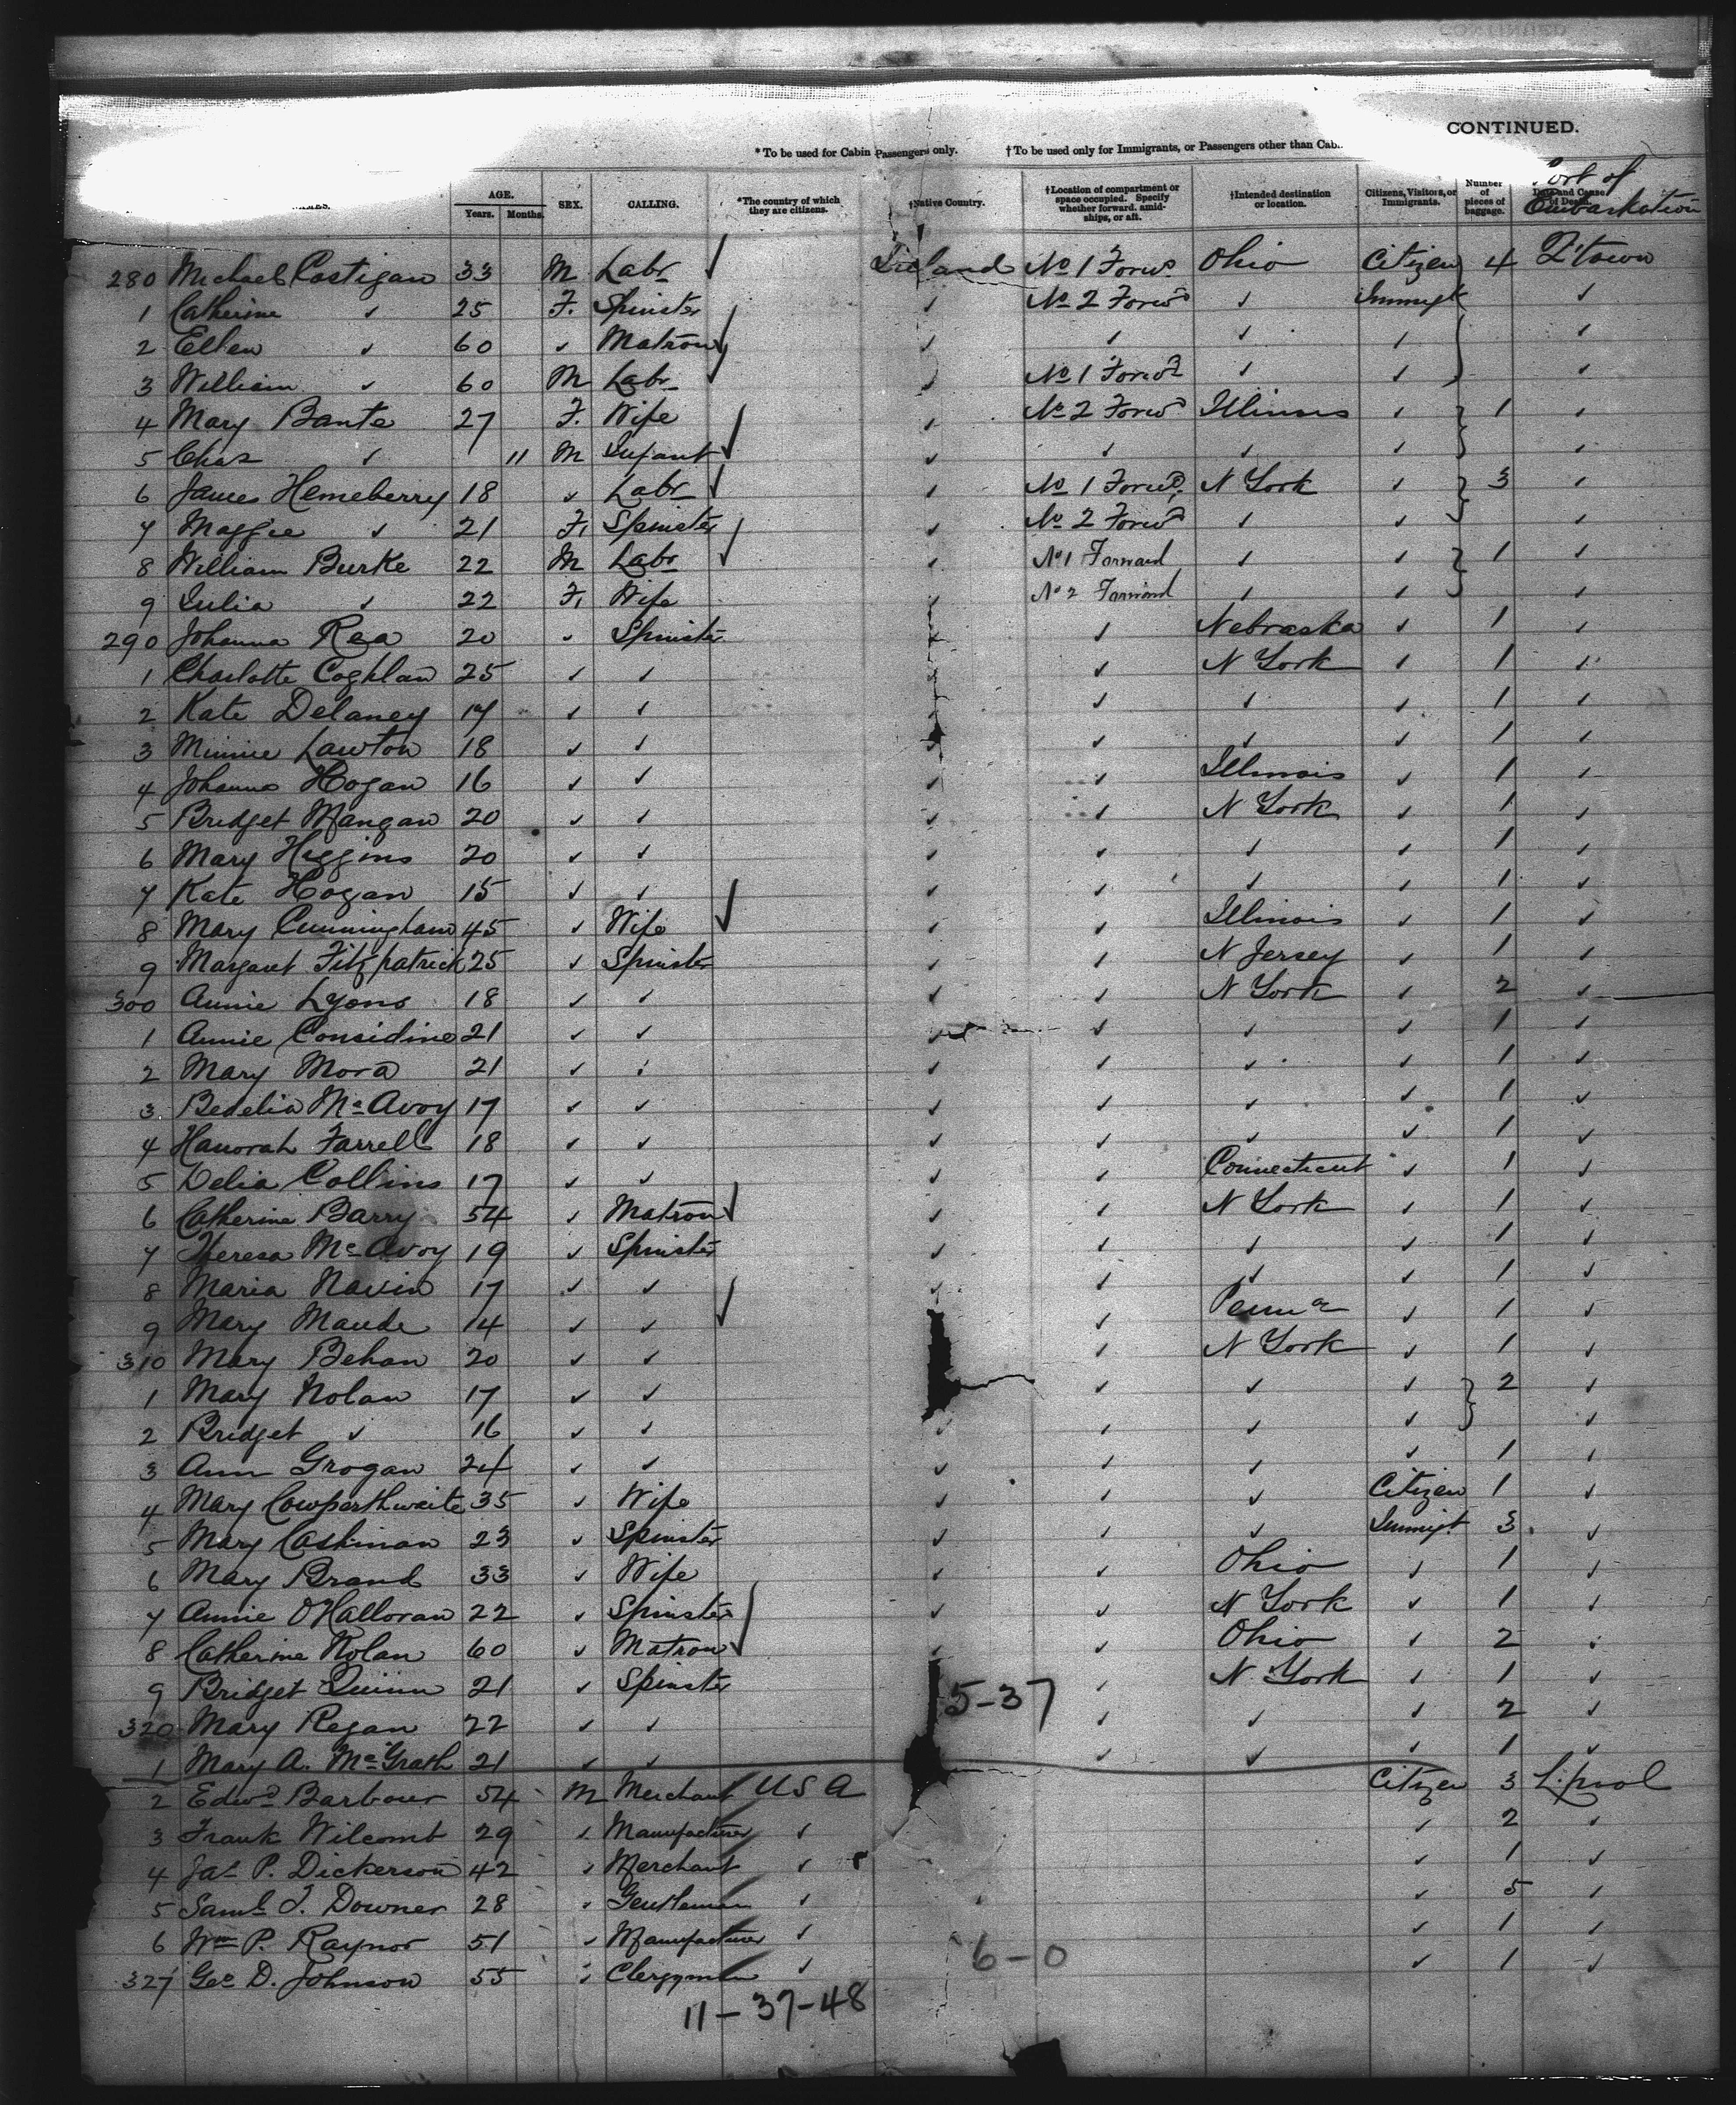 CONTINUED.
* To be used for Cabin Passengers only. † To be used only for Immigrants, or Passengers other than Cab
Port of Embarkation
AGE. Years. Months. SEX. CALLING. *The country of which they are citizens. †Native Country. †Location of compartment or space occupied. Specify whether forward, amidships, or aft. †Intended destination or location. Citizens, Visitors, or Immigrants. Number of pieces of baggage. Date and Cause of Death.
280 Michael Costigan 33 M Labr ✓ Ireland No 1 Forwd Ohio Citizen 4 Q'town
1 Catherine ✓ 25 F. Spinster ✓ No 2 Forwd ✓ Immigt ✓
2 Ellen ✓ 60 ✓ Matron ✓ ✓ ✓ ✓ ✓ ✓
3 William ✓ 60 M Labr ✓ No 1 Forwd ✓ ✓ ✓
4 Mary Bante 27 F. Wife ✓ No 2 Forwd Illinois ✓ 1 ✓
5 Chas ✓ 11 M Infant ✓ ✓ ✓ ✓ ✓ ✓
6 James Hemeberry 18 ✓ Labr ✓ ✓ No 1 Forwd. N York ✓ 3 ✓
7 Maggie ✓ 21 F. Spinster ✓ No 2 Forwd ✓ ✓ ✓
8 William Burke 22 M Labr ✓ ✓ No 1 Forward ✓ ✓ 1 ✓
9 Julia ✓ 22 F. Wife ✓ No 2 Forward ✓ ✓ ✓
290 Johanna Rea 20 ✓ Spinster ✓ Nebraska ✓ 1 ✓
1 Charlotte Coghlan 25 ✓ ✓ ✓ N York ✓ 1 ✓
2 Kate Delaney 17 ✓ ✓ ✓ ✓ ✓ ✓ 1 ✓
3 Minnie Lawton 18 ✓ ✓ ✓ ✓ ✓ ✓ 1 ✓
4 Johanna Hogan 16 ✓ ✓ ✓ ✓ Illinois ✓ 1 ✓
5 Bridget Mangan 20 ✓ ✓ ✓ ✓ N York ✓ 1 ✓
6 Mary Higgins 20 ✓ ✓ ✓ ✓ ✓ ✓ 1 ✓
7 Kate Hogan 15 ✓ ✓ ✓ ✓ ✓ ✓ 1 ✓
8 Mary Cunningham 45 ✓ Wife ✓ ✓ ✓ Illinois ✓ 1 ✓
9 Margaret Fitzpatrick 25 ✓ Spinster ✓ ✓ N Jersey ✓ 1 ✓
300 Annie Lyons 18 ✓ ✓ ✓ ✓ N York ✓ 2 ✓
1 Annie Considine 21 ✓ ✓ ✓ ✓ ✓ ✓ 1 ✓
2 Mary Mora 21 ✓ ✓ ✓ ✓ ✓ ✓ 1 ✓
3 Bedelia Mc Avoy 17 ✓ ✓ ✓ ✓ ✓ ✓ 1 ✓
4 Hanorah Farrell 18 ✓ ✓ ✓ ✓ ✓ ✓ 1 ✓
5 Delia Collins 17 ✓ ✓ ✓ ✓ Connecticut ✓ 1 ✓
6 Catherine Barry 54 ✓ Matron ✓ ✓ ✓ N York ✓ 1 ✓
7 Theresa Mc Avoy 19 ✓ Spinster ✓ ✓ ✓ ✓ 1 ✓
8 Maria Navin 17 ✓ ✓ ✓ ✓ ✓ ✓ 1 ✓
9 Mary Maude 14 ✓ ✓ ✓ ✓ Penna ✓ 1 ✓
310 Mary Behan 20 ✓ ✓ ✓ N York ✓ 1 ✓
1 Mary Nolan 17 ✓ ✓ ✓ ✓ ✓ 2 ✓
2 Bridget ✓ 16 ✓ ✓ ✓ ✓ ✓ ✓ ✓
3 Ann Grogan 24 ✓ ✓ ✓ ✓ ✓ ✓ 1 ✓
4 Mary Cowperthwaite 35 ✓ Wife ✓ ✓ ✓ Citizen 1 ✓
5 Mary Cashman 23 ✓ Spinster ✓ ✓ ✓ Immigt 3 ✓
6 Mary Brand 33 ✓ Wife ✓ ✓ Ohio ✓ 1 ✓
7 Annie O'Halloran 22 ✓ Spinster ✓ ✓ N York ✓ 1 ✓
8 Catherine Nolan 60 ✓ Matron ✓ ✓ ✓ Ohio ✓ 2 ✓
9 Bridget Quinn 21 ✓ Spinster ✓ N York ✓ 1 ✓
5-37
320 Mary Regan 22 ✓ ✓ ✓ ✓ ✓ 2 ✓
1 Mary A. Mc Grath 21 ✓ ✓ ✓ ✓ ✓ 1 ✓
2 Edwd Barbour 54 M Merchant U S A Citizen 3 L'pool
3 Frank Wilcomb 29 ✓ Manufacturer ✓ ✓ 2 ✓
4 Jas P. Dickerson 42 ✓ Merchant ✓ ✓ 1 ✓
5 Saml T. Downer 28 ✓ Gentleman ✓ ✓ 5 ✓
6 Wm P. Raynor 51 ✓ Manufacturer ✓ ✓ 1 ✓
6-0
327 Geo D. Johnson 55 ✓ Clergyman ✓ ✓ 1 ✓
11-37-48